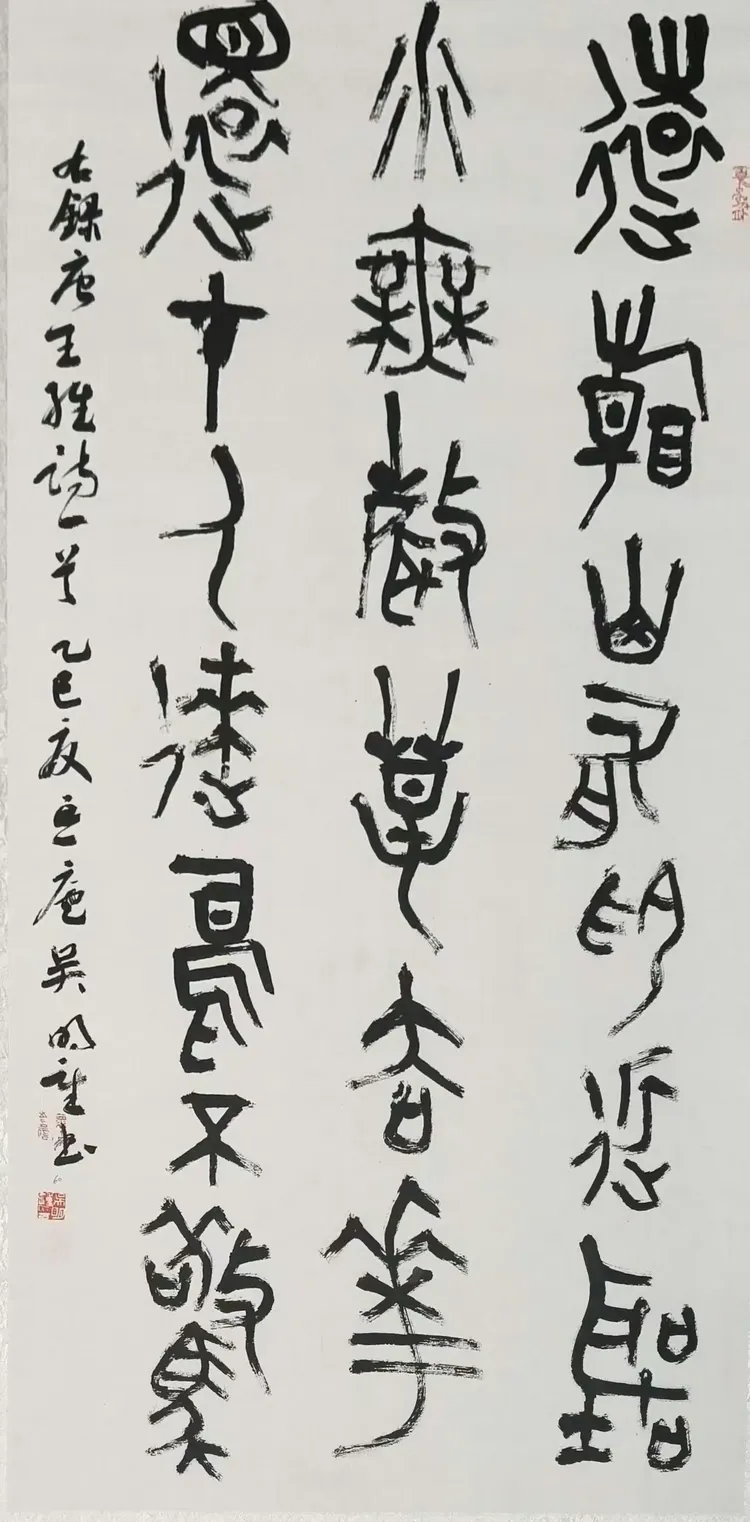 遠看山有色近聽
水無聲春去華
還在人來鳥不驚
右錄唐王維詩一首 乙巳夏庵吴明書